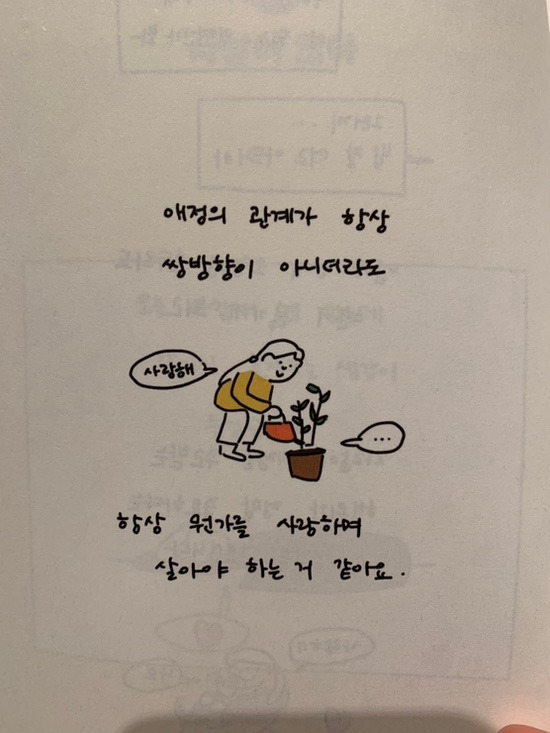 애정의 관계가 항상
쌍방향이 아니더라도
사랑해
...
항상 뭔가를 사랑하며
살아야 하는 거 같아요.